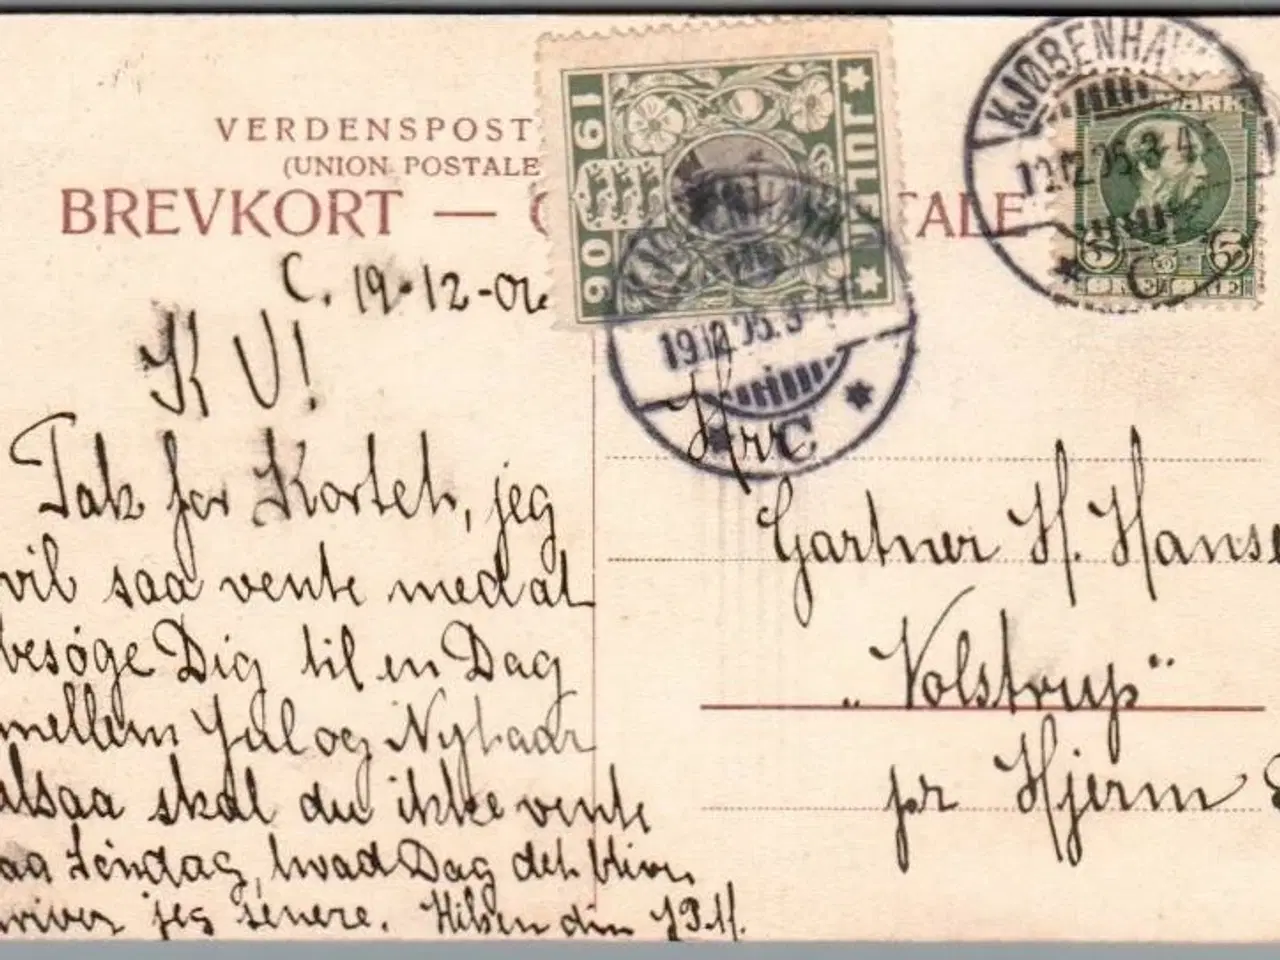 VERDENSPOST
(UNION POSTALE
BREVKORT — TALE
JULEN
1906
KJØBENHAVN
19.12.06.3-4
C
KJØBENHAVN
19.12.06.3-4
C
DANMARK
5 5
ØRE ØRE
C. 19-12-06
K V!
Tak for Kortet, jeg
vil saa vente med at
besøge Dig til en Dag
mellem Jul og Nytaar
altsaa skal du ikke vente
paa Søndag, hvad Dag det bliver
skriver jeg senere. Hilsen din
Hrr.
Gartner H. Hanse
„Volstrup“
pr Hjerm